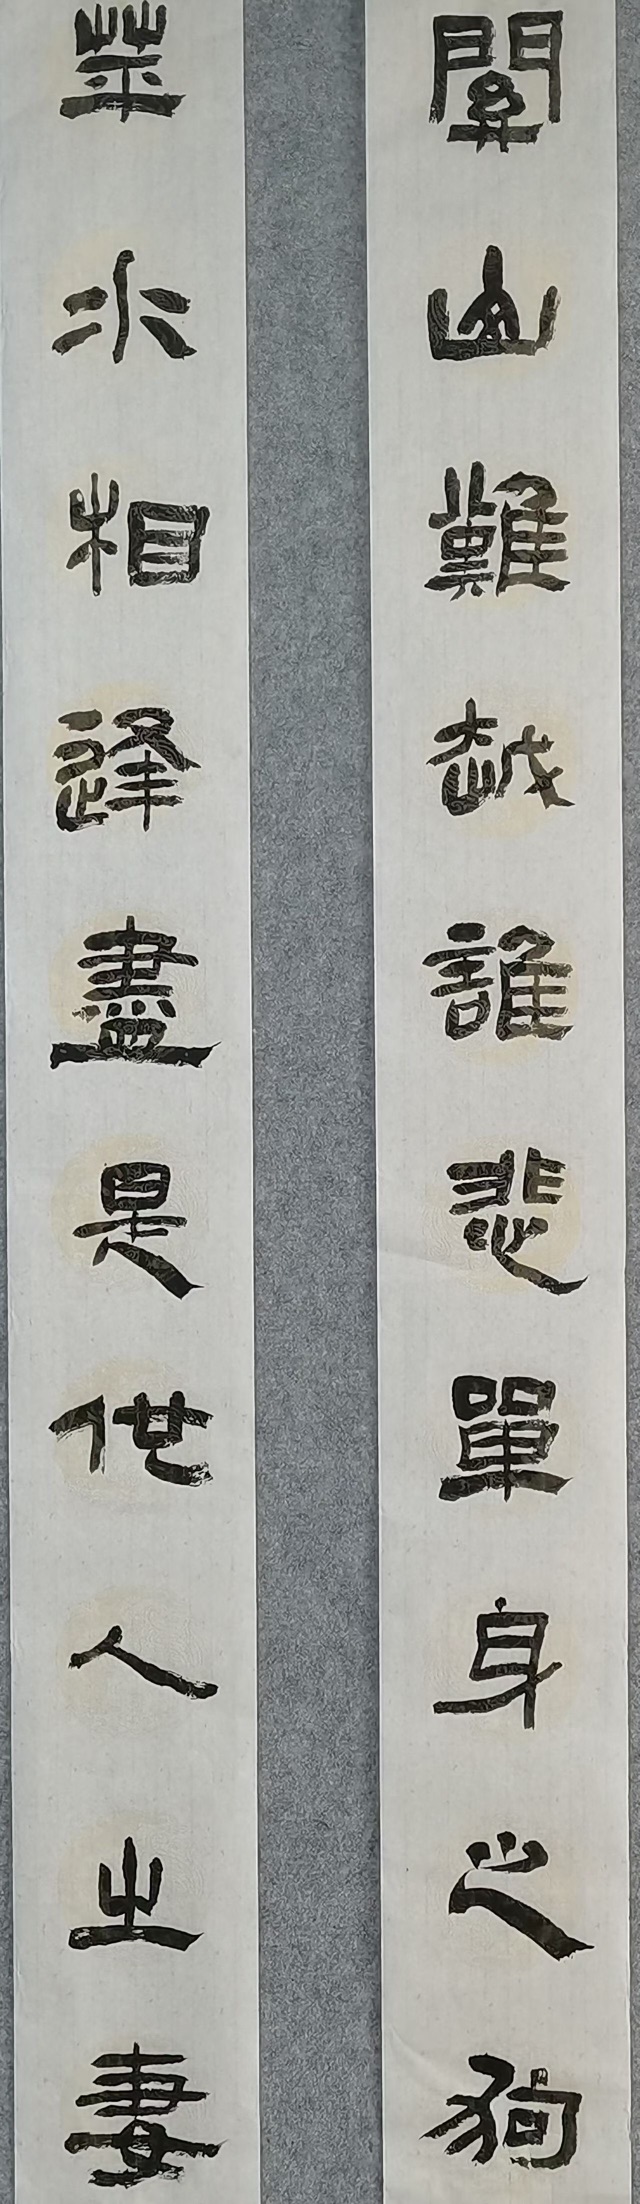 關山難越誰悲單身之狗
苹水相逢盡是他人之妻